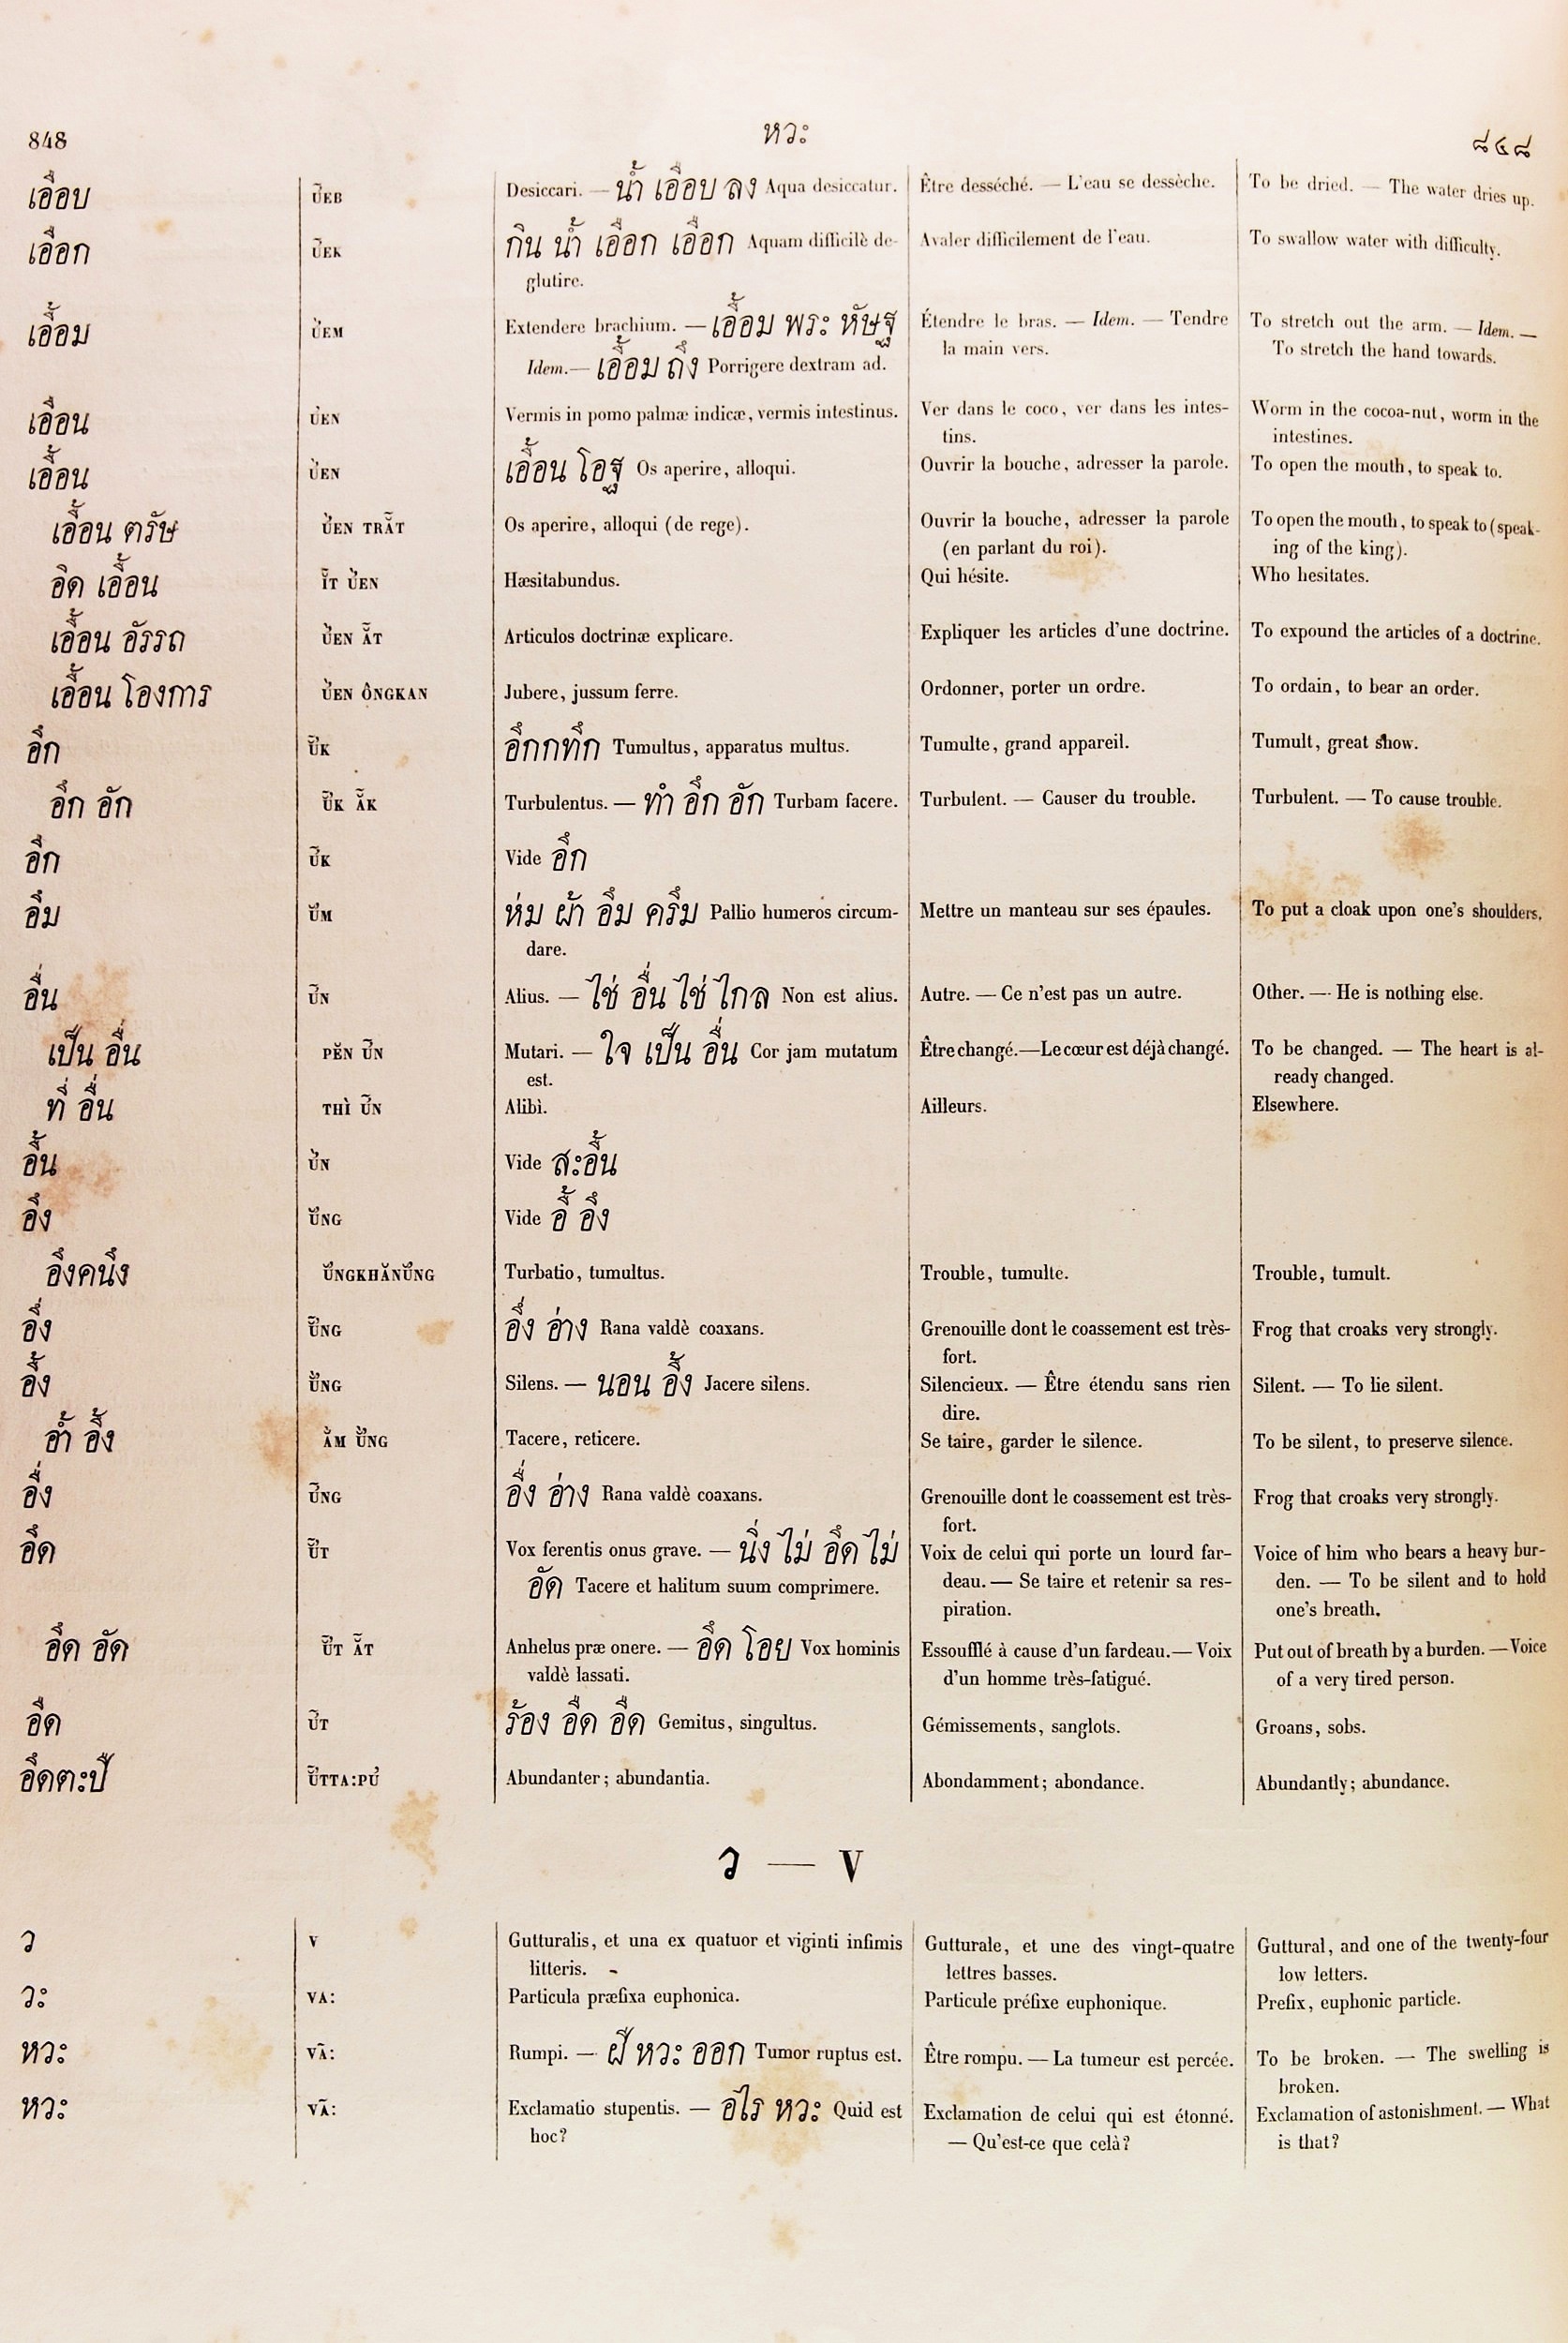 848 หวะ ๘๔๘
เอือบ ỮEB Desiccari. — น้ำ เอือบ ลง Aqua desiccatur. Être desséché. — L'eau se dessèche. To be dried. — The water dries up.
เอือก ỮEK กิน น้ำ เอือก เอือก Aquam difficilè de- Avaler difficilement de l'eau. To swallow water with difficulty.
glutire.
เอื้อม Extendere brachium. — เอื้อม พระ หัษฐ Étendre le bras. — Idem. — Tendre To stretch out the arm. — Idem. —
Idem. — เอื้อม ถึง Porrigere dextram ad. la main vers. To stretch the hand towards.
เอือน Vermis in pomo palmæ indicæ, vermis intestinus. Ver dans le coco, ver dans les intes- Worm in the cocoa-nut, worm in the
tins. intestines.
เอื้อน เอื้อน โอฐ Os aperire, alloqui. Ouvrir la bouche, adresser la parole. To open the mouth, to speak to.
เอื้อน ตรัษ Os aperire, alloqui (de rege). Ouvrir la bouche, adresser la parole To open the mouth, to speak to (speak-
(en parlant du roi). ing of the king).
อิด เอื้อน Hæsitabundus. Qui hésite. Who hesitates.
เอื้อน อัรรถ Articulos doctrinæ explicare. Expliquer les articles d'une doctrine. To expound the articles of a doctrine.
เอื้อน โองการ Jubere, jussum ferre. Ordonner, porter un ordre. To ordain, to bear an order.
อึก อึกกทึก Tumultus, apparatus multus. Tumulte, grand appareil. Tumult, great show.
อึก อัก Turbulentus. — ทำ อึก อัก Turbam facere. Turbulent. — Causer du trouble. Turbulent. — To cause trouble.
อืก Vide อึก
อึม ห่ม ผ้า อึม ครึม Pallio humeros circum- Mettre un manteau sur ses épaules. To put a cloak upon one's shoulders.
dare.
อื่น Alius. — ไช่ อื่น ไช่ ไกล Non est alius. Autre. — Ce n'est pas un autre. Other. — He is nothing else.
เป็น อื่น Mutari. — ใจ เป็น อื่น Cor jam mutatum Être changé. — Le cœur est déjà changé. To be changed. — The heart is al-
est. ready changed.
ที่ อื่น Alibì. Ailleurs. Elsewhere.
อื้น Vide สะอื้น
อึง Vide อื้ อึง
อึงคนึง Turbatio, tumultus. Trouble, tumulte. Trouble, tumult.
อึ่ง อึ่ง อ่าง Rana valdè coaxans. Grenouille dont le coassement est très- Frog that croaks very strongly.
fort.
อึ้ง Silens. — นอน อึ้ง Jacere silens. Silencieux. — Être étendu sans rien Silent. — To lie silent.
dire.
อ้ำ อึ้ง Tacere, reticere. Se taire, garder le silence. To be silent, to preserve silence.
อื่ง อื่ง อ่าง Rana valdè coaxans. Grenouille dont le coassement est très- Frog that croaks very strongly.
fort.
อึด Vox ferentis onus grave. — นิ่ง ไม่ อึด ไม่ Voix de celui qui porte un lourd far- Voice of him who bears a heavy bur-
อัด Tacere et halitum suum comprimere. deau. — Se taire et retenir sa res- den. — To be silent and to hold
piration. one's breath.
อึด อัด Anhelus præ onere. — อึด โอย Vox hominis Essoufflé à cause d'un fardeau. — Voix Put out of breath by a burden. — Voice
valdè lassati. d'un homme très-fatigué. of a very tired person.
อืด ร้อง อืด อืด Gemitus, singultus. Gémissements, sanglots. Groans, sobs.
อึดตะปื Abundanter; abundantia. Abondamment; abondance. Abundantly; abundance.
ว — V
ว V Gutturalis, et una ex quatuor et viginti infimis Gutturale, et une des vingt-quatre Guttural, and one of the twenty-four
litteris. lettres basses. low letters.
วะ VA: Particula præfixa euphonica. Particule préfixe euphonique. Prefix, euphonic particle.
หวะ VÃ: Rumpi. — ฝี หวะ ออก Tumor ruptus est. Être rompu. — La tumeur est percée. To be broken. — The swelling is
broken.
หวะ VÃ: Exclamatio stupentis. — อไร หวะ Quid est Exclamation de celui qui est étonné. Exclamation of astonishment. — What
hoc? — Qu'est-ce que celà? is that?